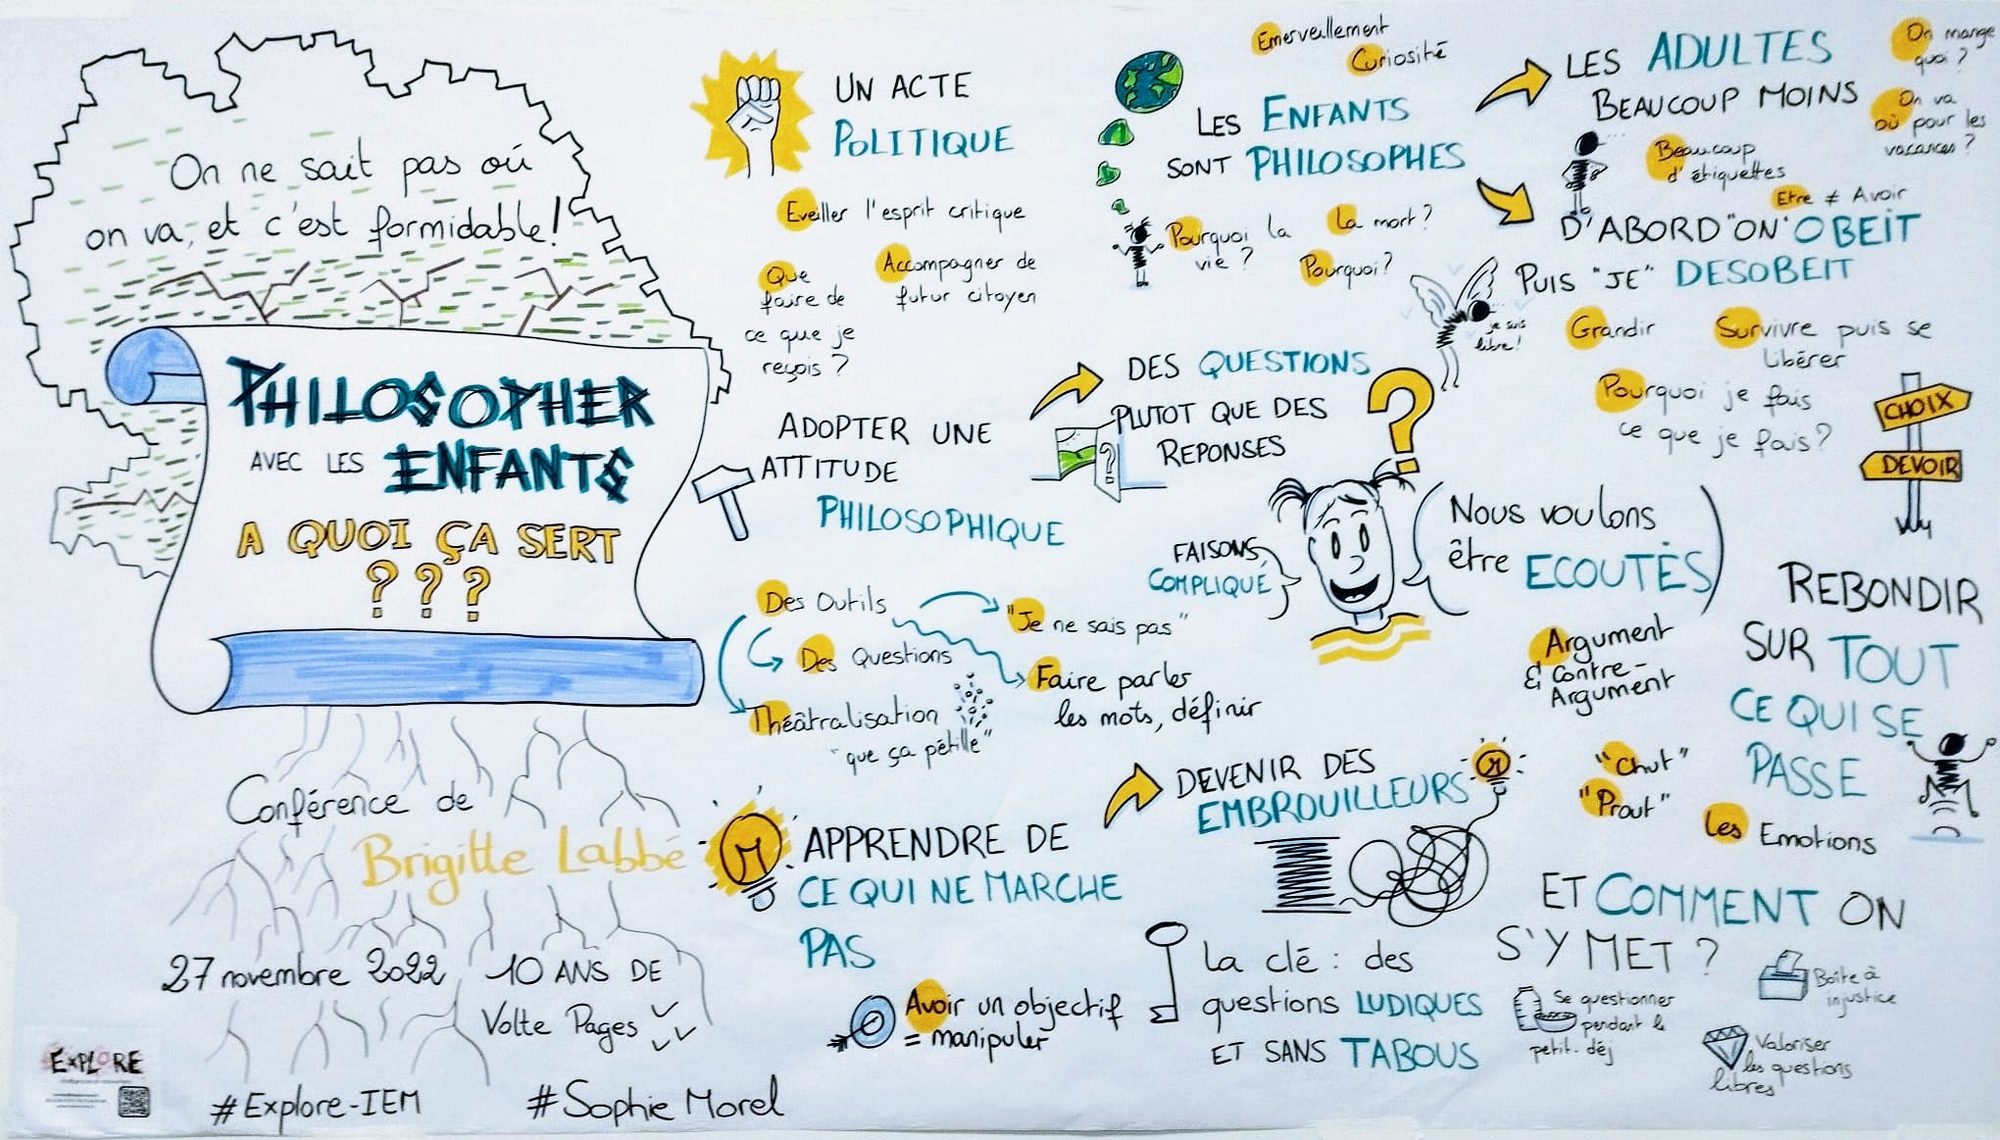 On ne sait pas où
on va, et c'est formidable!
PHILOSOPHER
AVEC LES ENFANTS
A QUOI ÇA SERT
? ? ?
Conférence de
Brigitte Labbé
27 novembre 2022
10 ANS DE
Volte Pages
EXPLORE
#Explore-IEM
#Sophie Morel
UN ACTE
POLITIQUE
Eveiller l'esprit critique
Que
faire de
ce que je
reçois ?
Accompagner de
futur citoyen
ADOPTER UNE
ATTITUDE
PHILOSOPHIQUE
Des Outils
Des Questions
Théâtralisation
"que ça pétille"
"Je ne sais pas"
Faire parler
les mots, définir
APPRENDRE DE
CE QUI NE MARCHE
PAS
Avoir un objectif
= manipuler
Emerveillement
Curiosité
LES ENFANTS
SONT PHILOSOPHES
Pourquoi la
vie ?
La mort ?
Pourquoi ?
DES QUESTIONS
PLUTOT QUE DES
REPONSES
?
?
FAISONS
COMPLIQUÉ
Nous voulons
être ECOUTÉS
Argument
& Contre-
Argument
DEVENIR DES
EMBROUILLEURS
La clé : des
questions LUDIQUES
ET SANS TABOUS
LES ADULTES
BEAUCOUP MOINS
On mange
quoi ?
On va
où pour les
vacances ?
Beaucoup
d'étiquettes
Etre ≠ Avoir
D'ABORD "ON" OBEÏT
PUIS "JE" DESOBEÏT
je suis
libre!
Grandir
Survivre puis se
libérer
Pourquoi je fais
ce que je fais ?
CHOIX
DEVOIR
REBONDIR
SUR TOUT
CE QUI SE
PASSE
"Chut"
"Prout"
Les Emotions
ET COMMENT ON
S'Y MET ?
Se questionner
pendant le
petit-déj
Boîte à
injustice
Valoriser
les questions
libres